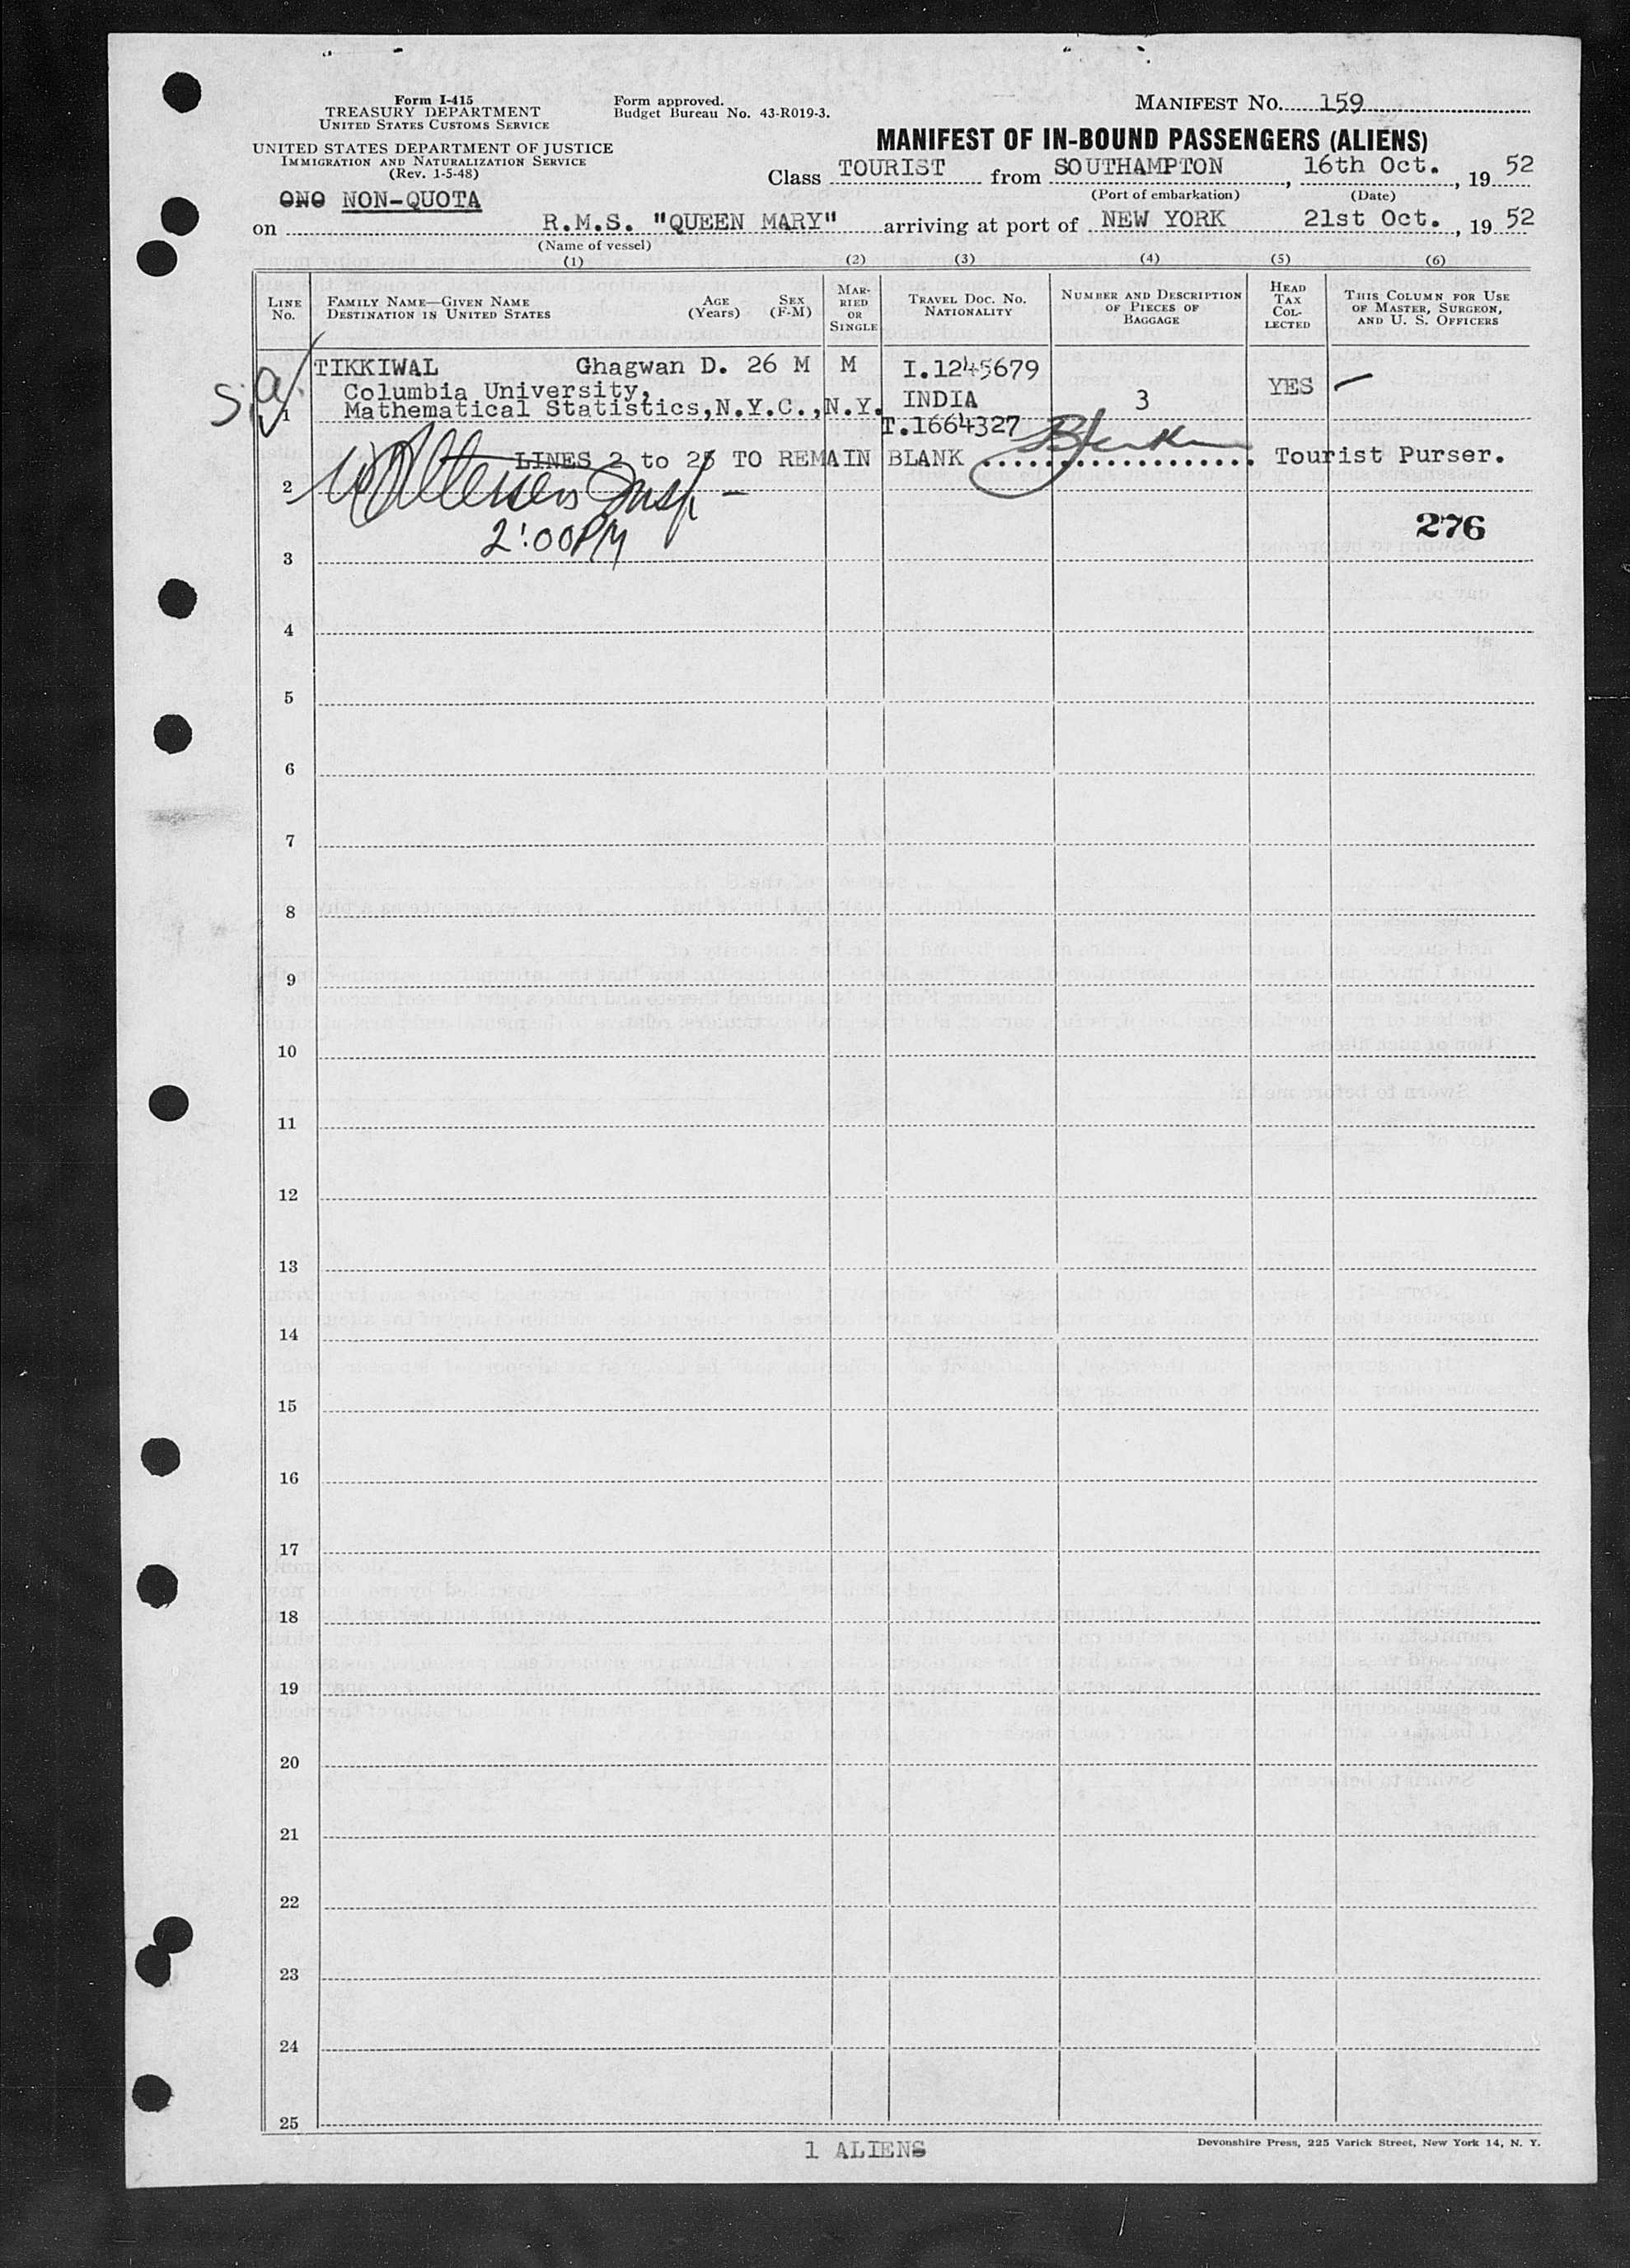 Form I-415
TREASURY DEPARTMENT
UNITED STATES CUSTOMS SERVICE
UNITED STATES DEPARTMENT OF JUSTICE
IMMIGRATION AND NATURALIZATION SERVICE
(Rev. 1-5-48)
Form approved.
Budget Bureau No. 43-R019-3.
MANIFEST NO. 159
MANIFEST OF IN-BOUND PASSENGERS (ALIENS)
Class TOURIST from SOUTHAMPTON, 16th Oct., 19 52
(Port of embarkation) (Date)
ONO NON-QUOTA
on R.M.S. "QUEEN MARY" arriving at port of NEW YORK 21st Oct., 19 52
(Name of vessel)
(1) (2) (3) (4) (5) (6)
LINE No.
FAMILY NAME—GIVEN NAME
DESTINATION IN UNITED STATES
AGE (Years)
SEX (F-M)
MARRIED OR SINGLE
TRAVEL DOC. NO. NATIONALITY
NUMBER AND DESCRIPTION OF PIECES OF BAGGAGE
HEAD TAX COLLECTED
THIS COLUMN FOR USE OF MASTER, SURGEON, AND U. S. OFFICERS
TIKKIWAL Ghagwan D. 26 M M I.1245679
Columbia University, INDIA 3 YES —
1 Mathematical Statistics, N.Y.C., N.Y.
T.1664327
LINES 2 to 25 TO REMAIN BLANK .................. Tourist Purser.
2
2:00PM
276
3
4
5
6
7
8
9
10
11
12
13
14
15
16
17
18
19
20
21
22
23
24
25
1 ALIENS
Devonshire Press, 225 Varick Street, New York 14, N. Y.